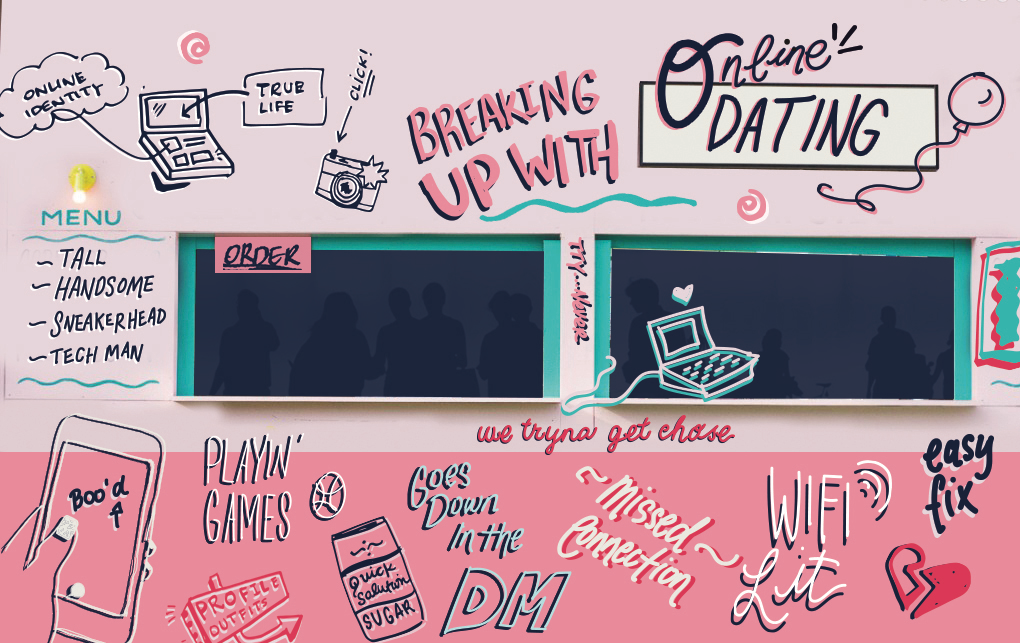 ONLINE
IDENTITY
TRUE
LIFE
CLICK!
BREAKING
UP WITH
Online
DATING
MENU
~ TALL
~ HANDSOME
~ SNEAKERHEAD
~ TECH MAN
ORDER
TRY...Never
we tryna get chose
Boo'd
PLAYIN'
GAMES
PROFILE
OUTFITS
Quick
Solution
SUGAR
Goes
Down
In the
DM
~ Missed
Connection ~
WIFI
Lit
easy
fix